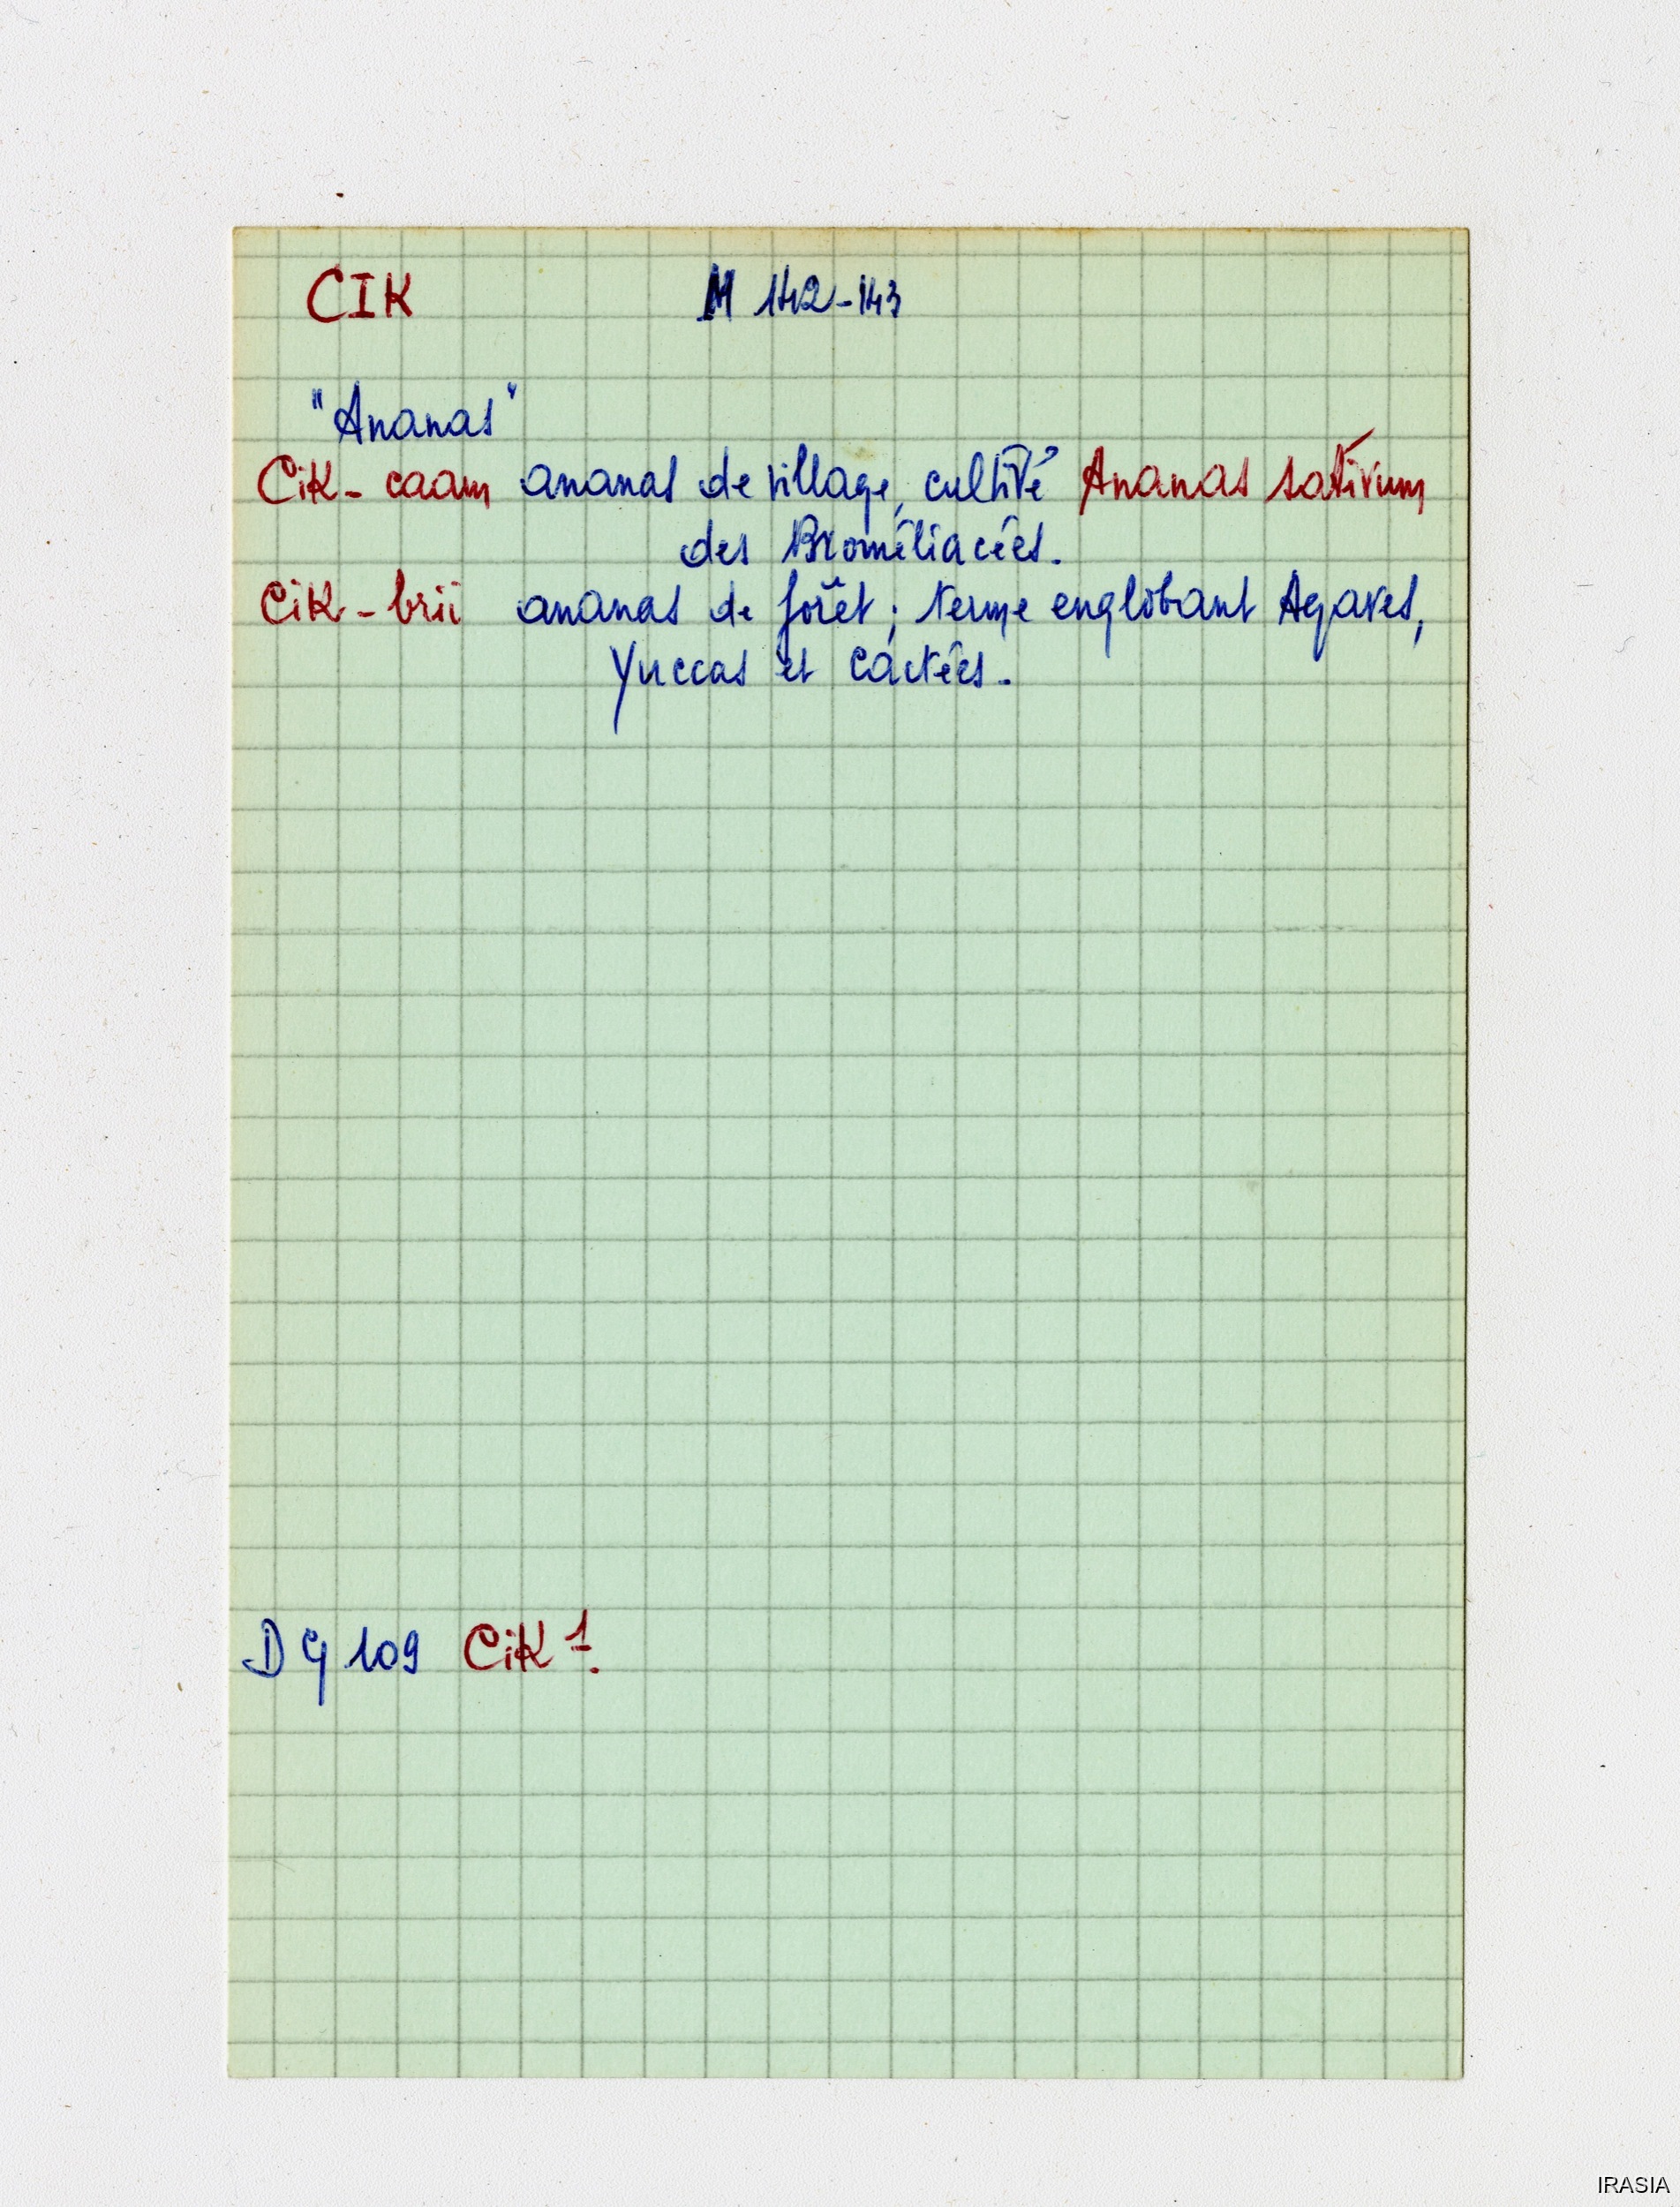 CIK M 142-143
"Ananas"
CiK - caam ananas de village, cultivé Ananas sativum
des Broméliacées.
CiK - brii ananas de forêt ; terme englobant Agaves,
Yuccas et cactées.
D G 109 CiK 1.
IRASIA